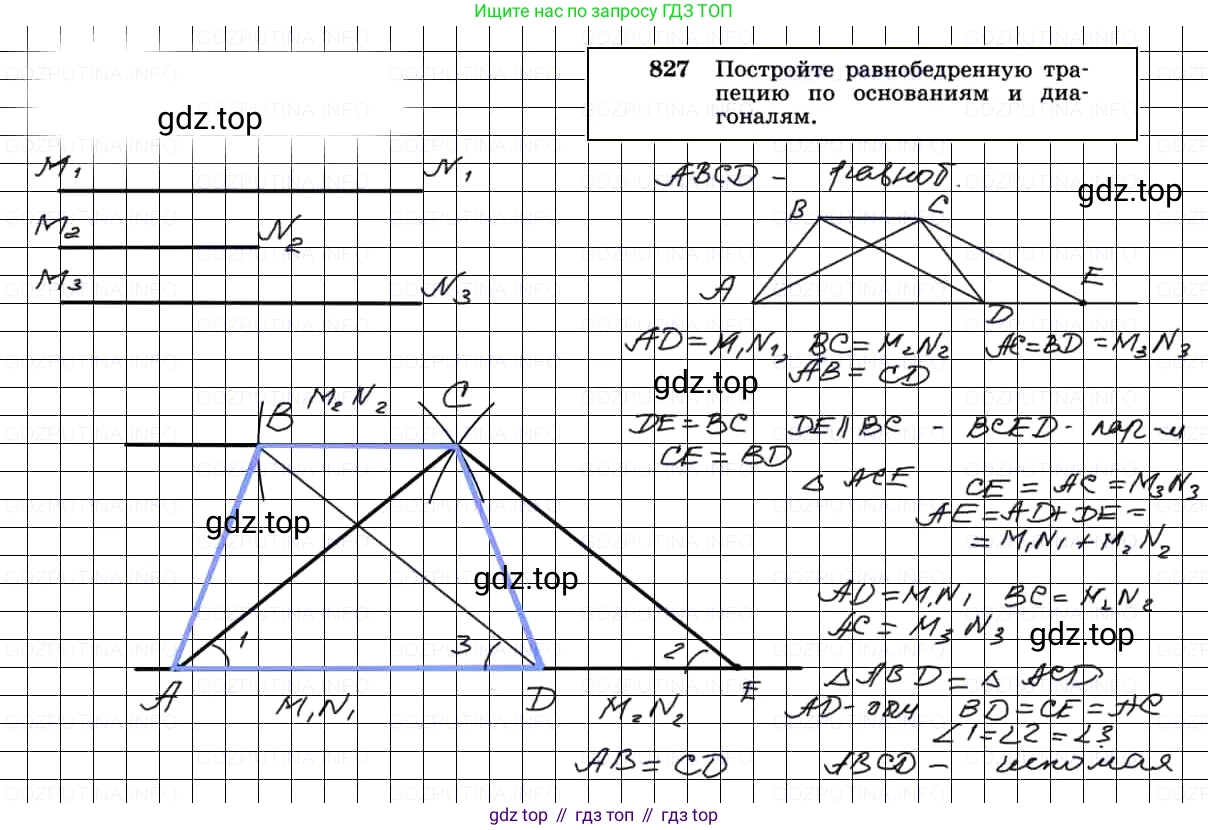 Ищите нас по запросу ГДЗ ТОП
827 Постройте равнобедренную тра-
пецию по основаниям и диа-
гоналям.
gdz.top
M₁ N₁
M₂ N₂
M₃ N₃
ABCD - равноб.
gdz.top
B C
A D E
AD = M₁N₁, BC = M₂N₂ AC = BD = M₃N₃
AB = CD
gdz.top
DE = BC DE ∥ BC - BCED - пар-м
CE = BD
△ ACE CE = AC = M₃N₃
AE = AD + DE =
= M₁N₁ + M₂N₂
B M₂N₂ C
gdz.top
gdz.top
1 3 2
A M₁N₁ D M₂N₂ E
AD = M₁N₁ BC = M₂N₂
AC = M₃N₃
gdz.top
△ ABD = △ ACD
AD - общ BD = CE = AC
∠1 = ∠2 = ∠3
AB = CD ABCD - искомая
GDZPUTINA.INFO
gdz top // гдз топ // gdz top